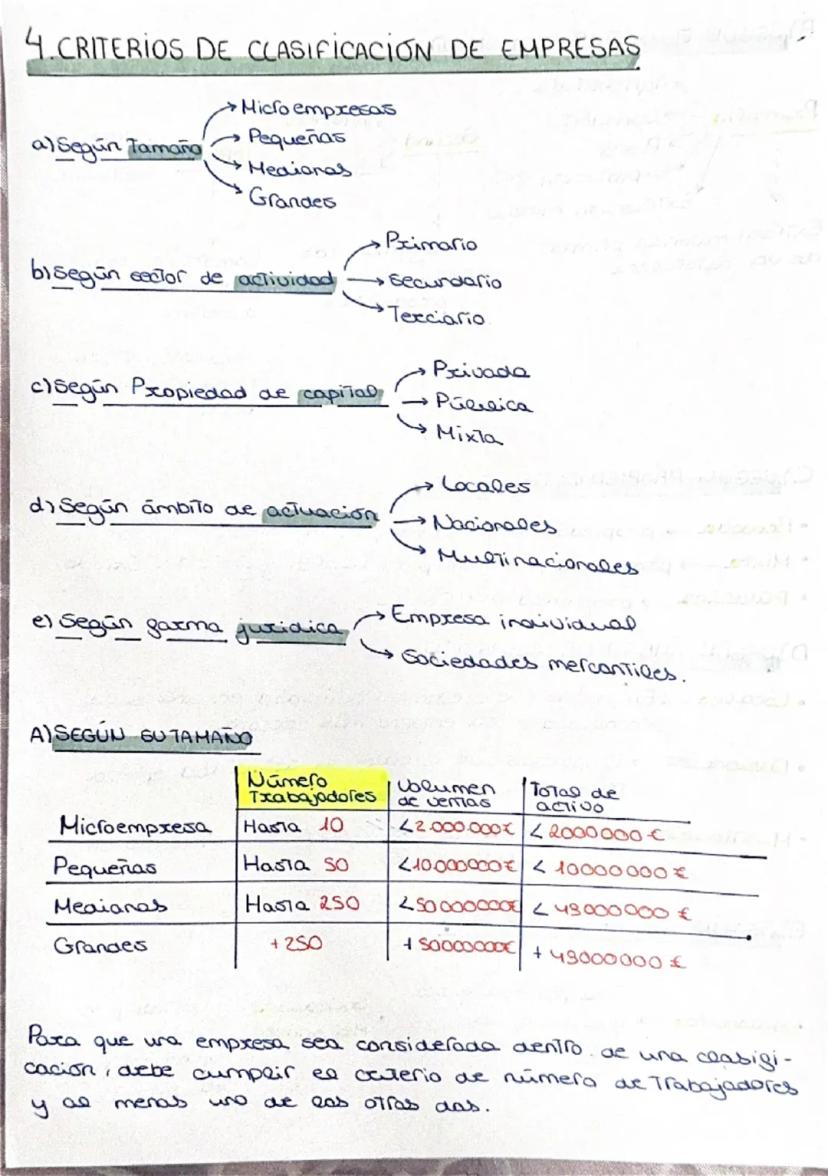 4. CRITERIOS DE CLASIFICACIÓN DE EMPRESAS
a) Según Tamaño
→ Micro empresas
→ Pequeñas
→ Medianas
→ Grandes
b) Según sector de actividad
→ Primario
→ Secundario
→ Terciario
c) Según Propiedad de capital
→ Privada
→ Pública
→ Mixta
d) Según ámbito de actuación
→ Locales
→ Nacionales
→ Multinacionales
e) Según forma jurídica
→ Empresa individual
→ Sociedades mercantiles.
A) SEGÚN SU TAMAÑO
Número Trabajadores | Volumen de ventas | Total de activo
Microempresa | Hasta 10 | <2.000.000€ | < 2000000 €
Pequeñas | Hasta 50 | <10.000000€ | < 10000000 €
Medianas | Hasta 250 | <50000000€ | < 43000000 €
Grandes | +250 | + 50000000€ | + 43000000 €
Para que una empresa sea considerada dentro de una clasifi-
cación, debe cumplir el criterio de número de Trabajadores
y al menos uno de los otros dos.